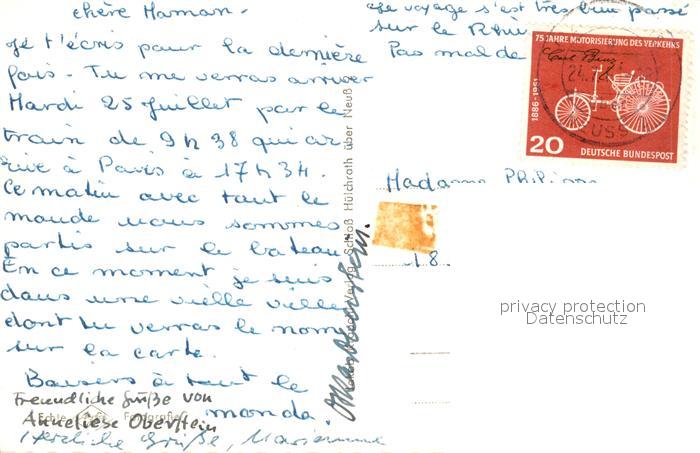 chère Maman.
Je t'écris pour la dernière
fois. Tu me verras arriver
Mardi 25 Juillet par le
train de 9h38 qui ar
rive à Paris à 17h34.
Ce matin avec tout le
monde nous sommes
partis sur le bateau
En ce moment je suis
dans une vielle ville
dont tu verras le nom
sur la carte.
Baisers à tout le
monde.
Freundliche Grüße von
Anneliese Oberstein
Herzliche Grüße, Marianne
Echte Fotografie
Verlag Schloß Hülchrath über Neuß
voyage s'est très bien passé
sur le Rhin
Pas mal de
75 JAHRE MOTORISIERUNG DES VERKEHRS
Carl Benz
1886-1961
20
DEUTSCHE BUNDESPOST
Madame Philipp
18
privacy protection
Datenschutz